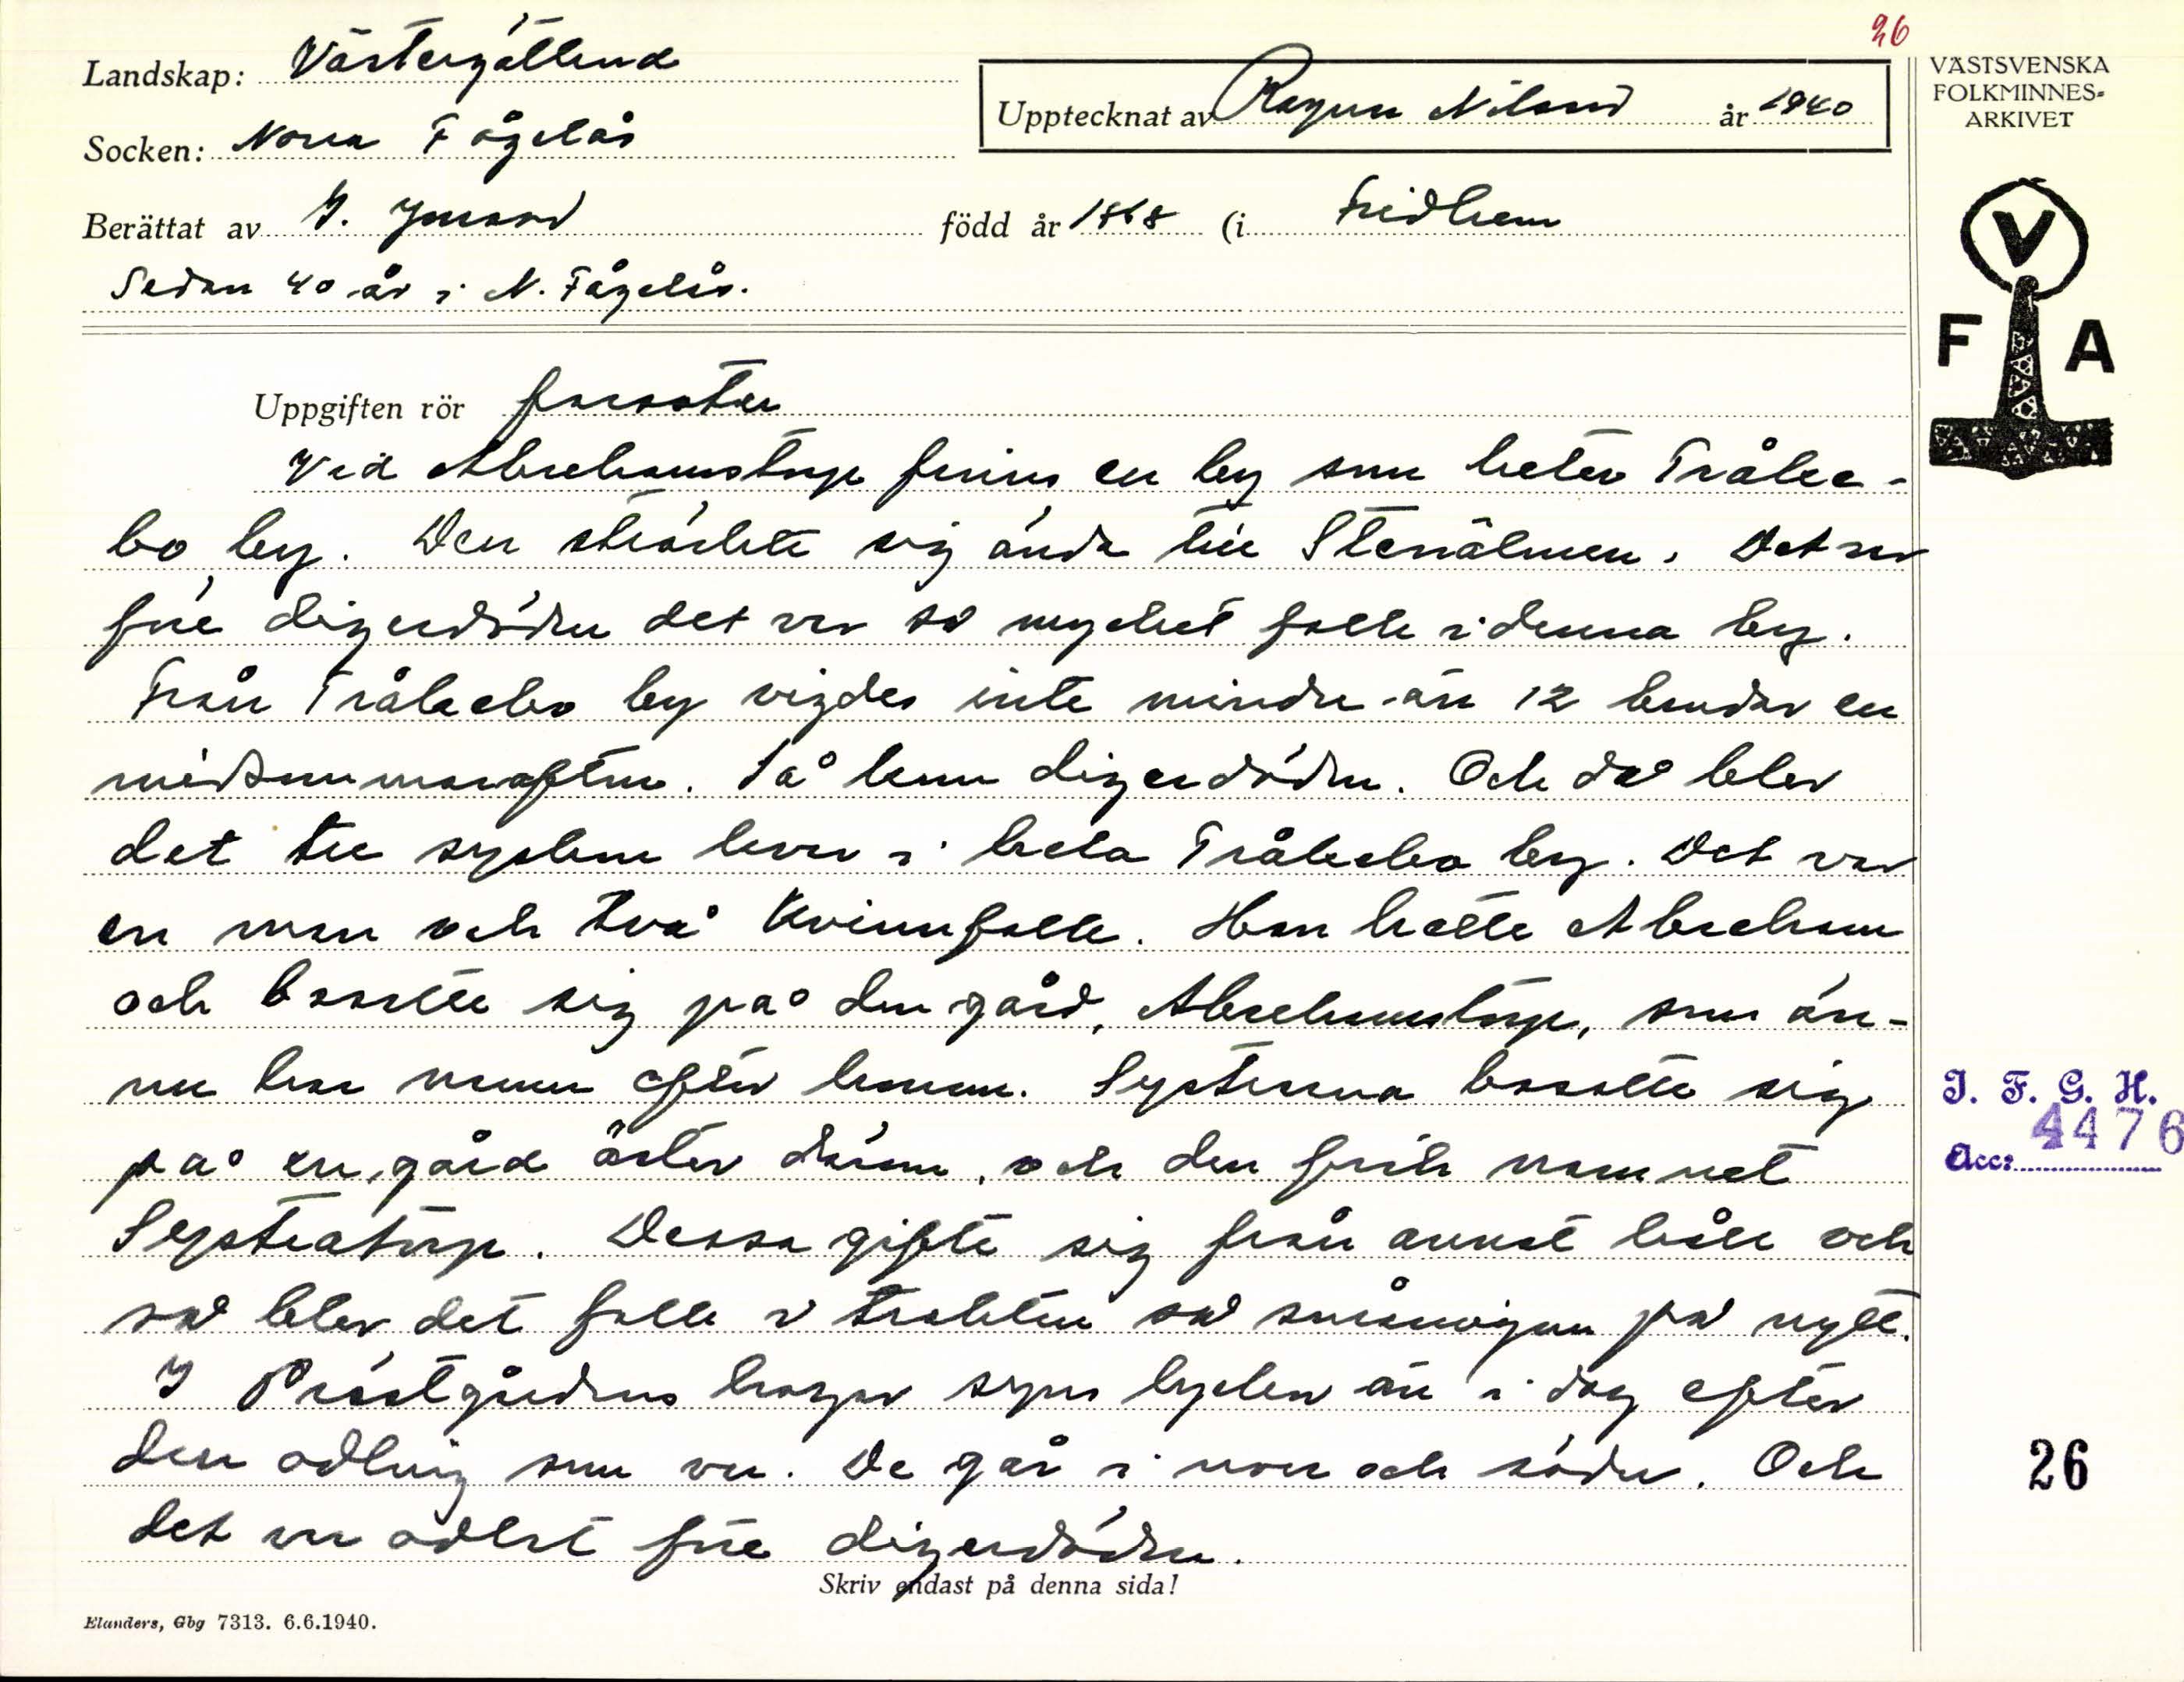 26
Landskap: Västergötland
Socken: Norra Fågelås
Upptecknat av Ragnar Nilsson år 1940
Berättat av J. Jonsson född år 1868 (i Fridhem
Sedan 40 år i N. Fågelås.
VÄSTSVENSKA
FOLKMINNES-
ARKIVET
V
F A
Uppgiften rör farsoter
Vid Abrahamstorp finns en by som heter Tråke-
bo by. Den sträckte sig ända till Stenåsen. Det var
före digerdöden det var så mycket folk i denna by.
Från Tråkebo by vigdes inte mindre än 12 brudar en
midsommarafton. Så kom digerdöden. Och då blev
det tre syskon kvar i hela Tråkebo by. Det var
en man och två kvinnfolk. Han hette Abraham
och bosatte sig på den gård, Abrahamstorp, som än-
nu har namn efter honom. Systrarna bosatte sig
på en gård öster därom, och den fick namnet
Systratorp. Dessa gifte sig från annat håll och
så blev det folk i trakten så småningom på nytt.
I Prästgårdens hagar syns lycker än i dag efter
den odling som var. De går i norr och söder. Och
det var odlat före digerdöden.
Skriv endast på denna sida!
Elanders, Gbg 7313. 6.6.1940.
I. F. G. H.
Acc: 4476
26